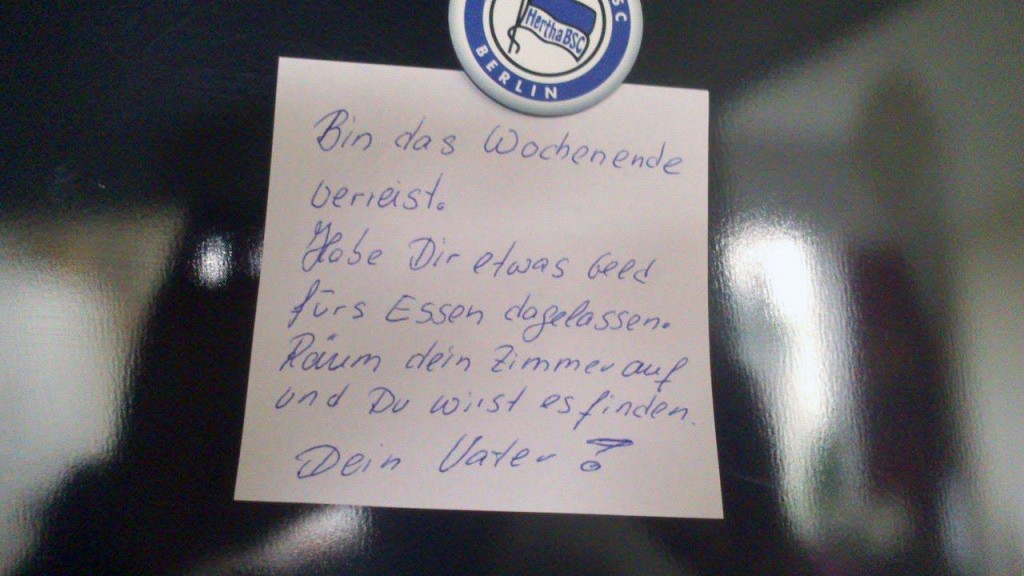 BSC
Hertha BSC
BERLIN
Bin das Wochenende
verreist.
Habe Dir etwas Geld
fürs Essen dagelassen.
Räum dein Zimmer auf
und Du wirst es finden.
Dein Vater